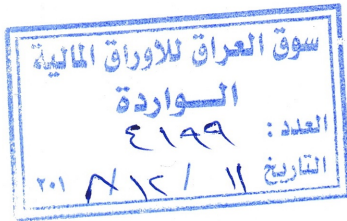 سوق العراق للاوراق المالية
الـواردة
العدد : ٤١٩٩
التاريخ ١١ / ١٢ / ٢٠١٨